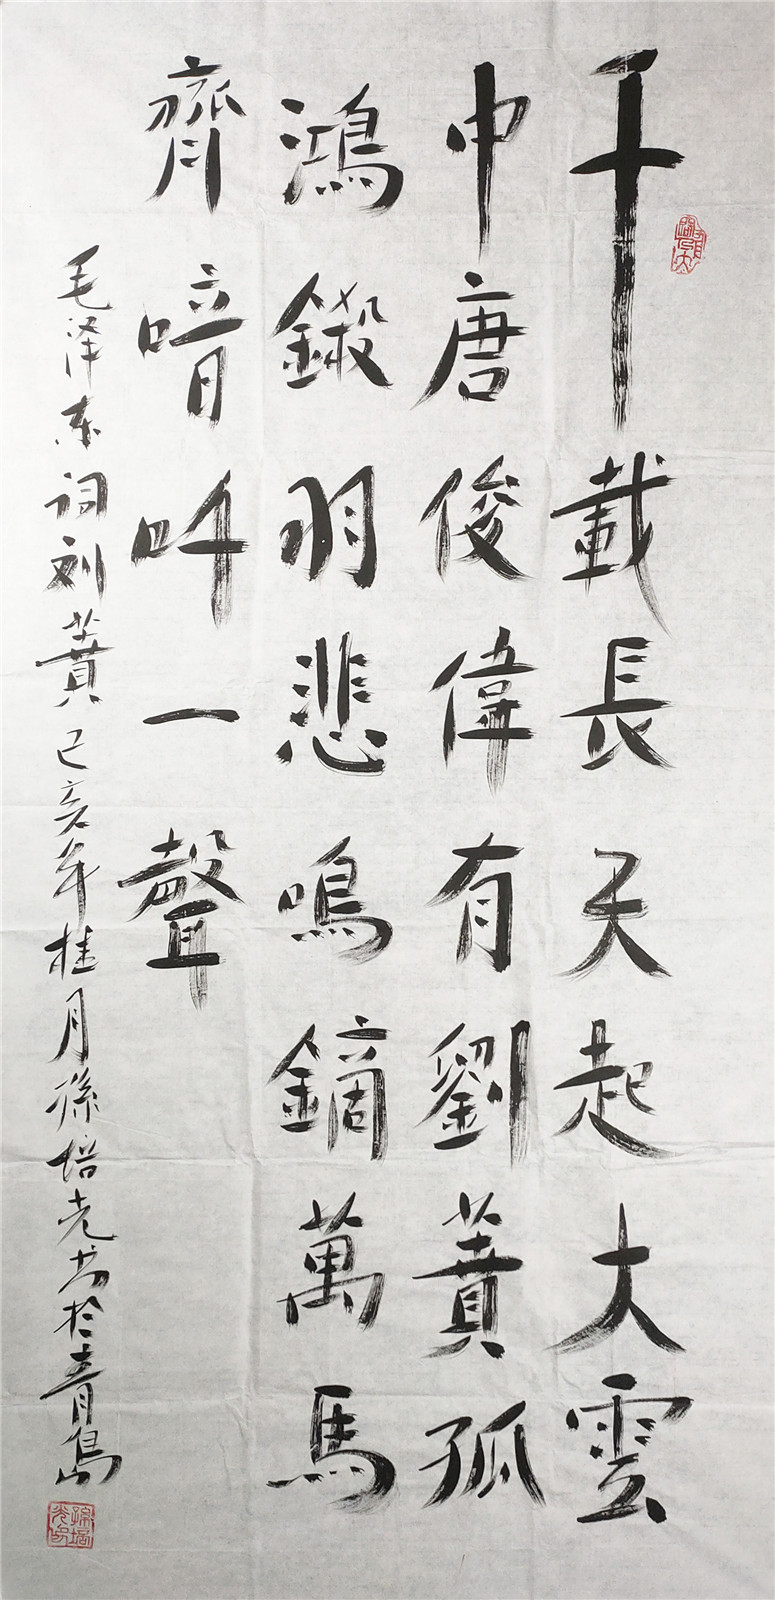 千載長天起大雲
中唐俊偉有劉蕡孤
鴻鎩羽悲鳴鏑萬馬
齊喑叫一聲
毛泽东词刘蕡己亥年桂月孫培光书於青島
孫培光印